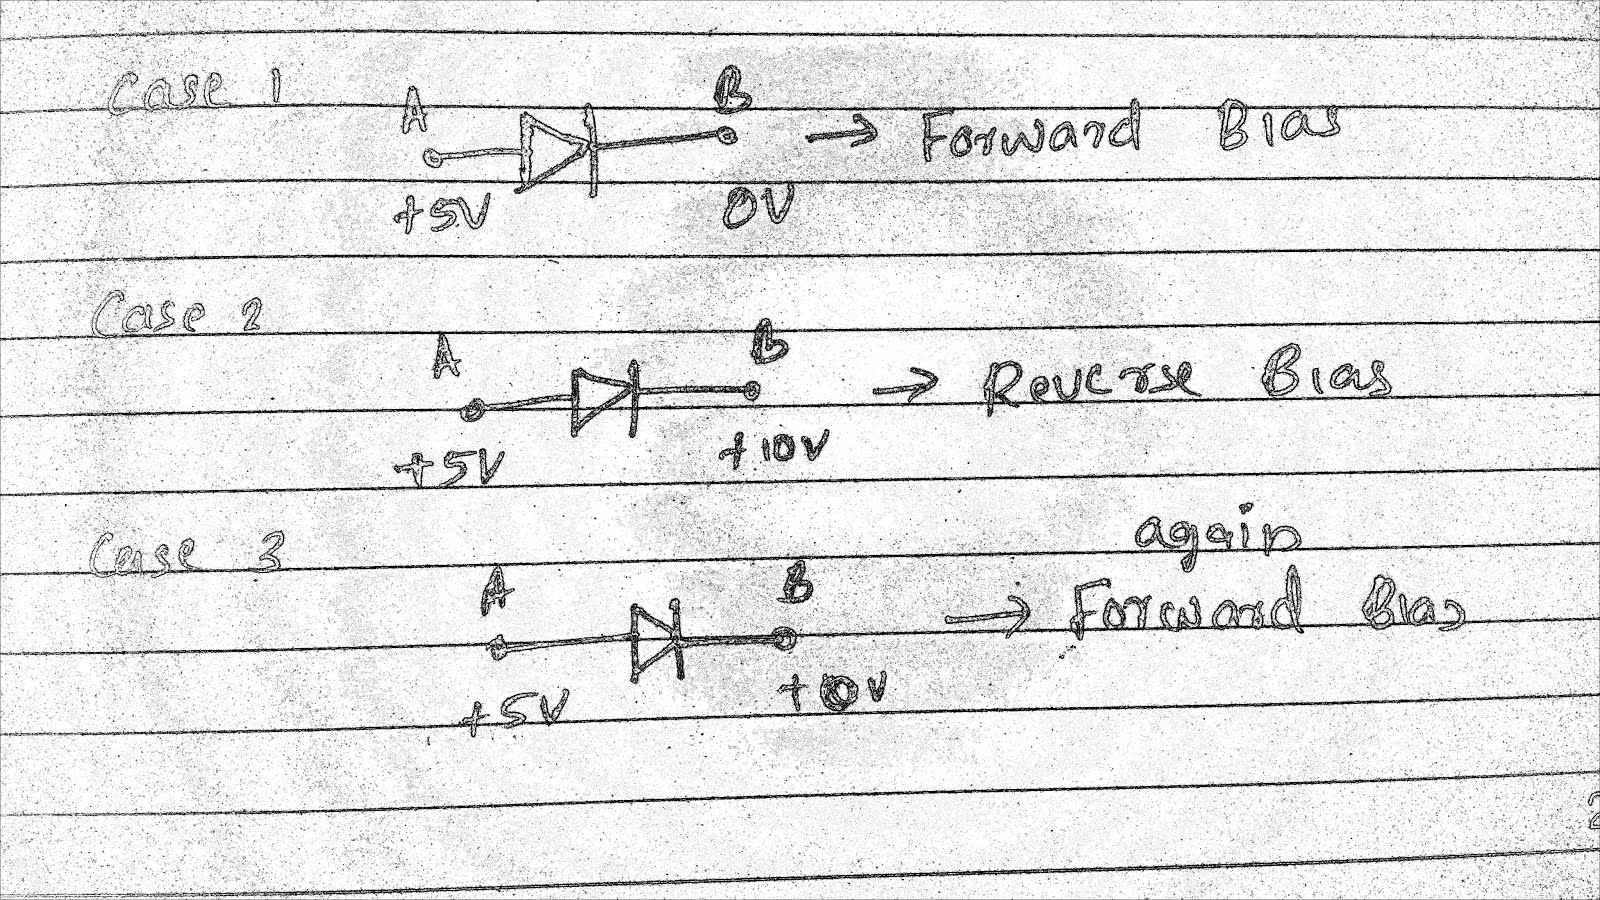 Case 1
A B → Forward Bias
+5V 0V
Case 2
A B → Reverse Bias
+5V +10V
again
Case 3
A B → Forward Bias
+5V
2